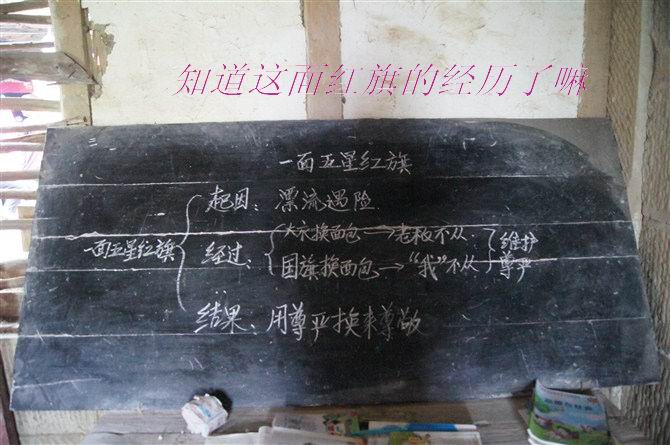 知道这面红旗的经历了嘛
一面五星红旗
起因：漂流遇险
一面五星红旗
经过：
大衣换面包→老板不从
国旗换面包→“我”不从
维护
尊严
结果：用尊严换来尊敬